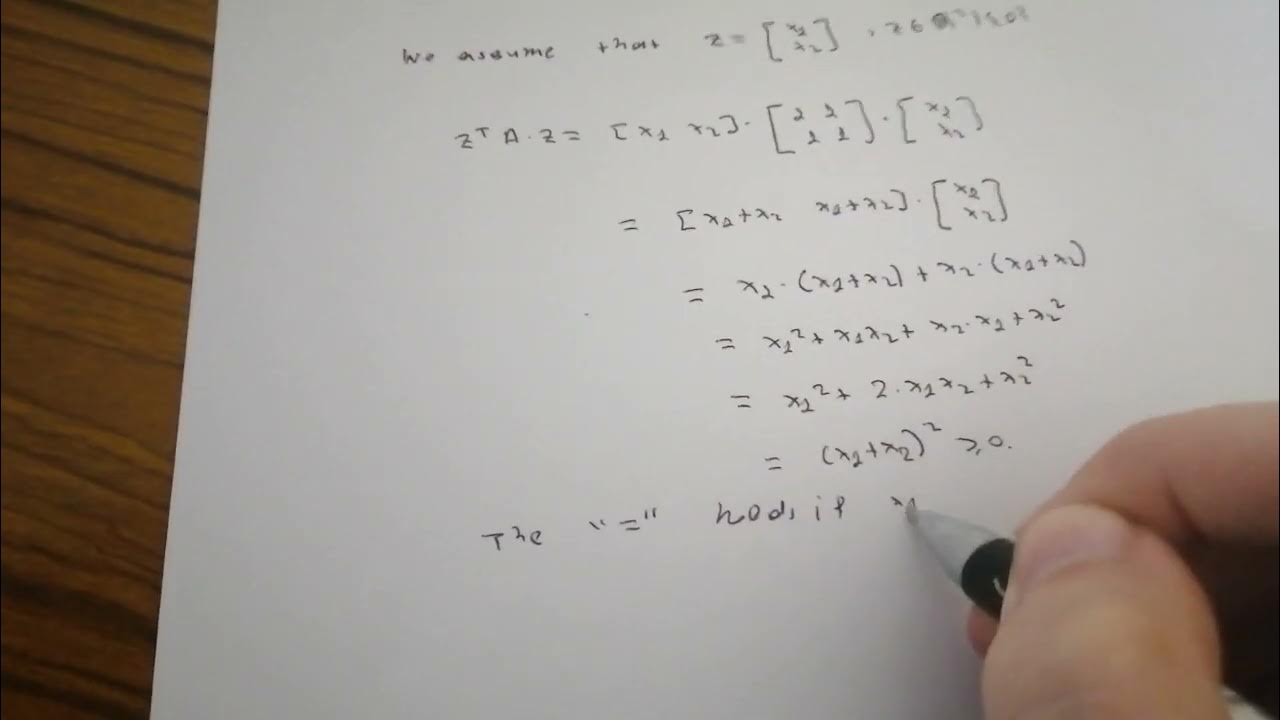 We assume that z = [x1 x2], z ∈ R² \ {0}
zᵀ A · z = [x1 x2] · [1 1 1 1] · [x1 x2]
= [x1+x2 x1+x2] · [x1 x2]
= x1 · (x1+x2) + x2 · (x1+x2)
= x1² + x1x2 + x2 · x1 + x2²
= x1² + 2 · x1x2 + x2²
= (x1+x2)² ≥ 0.
The "=" hods if x1